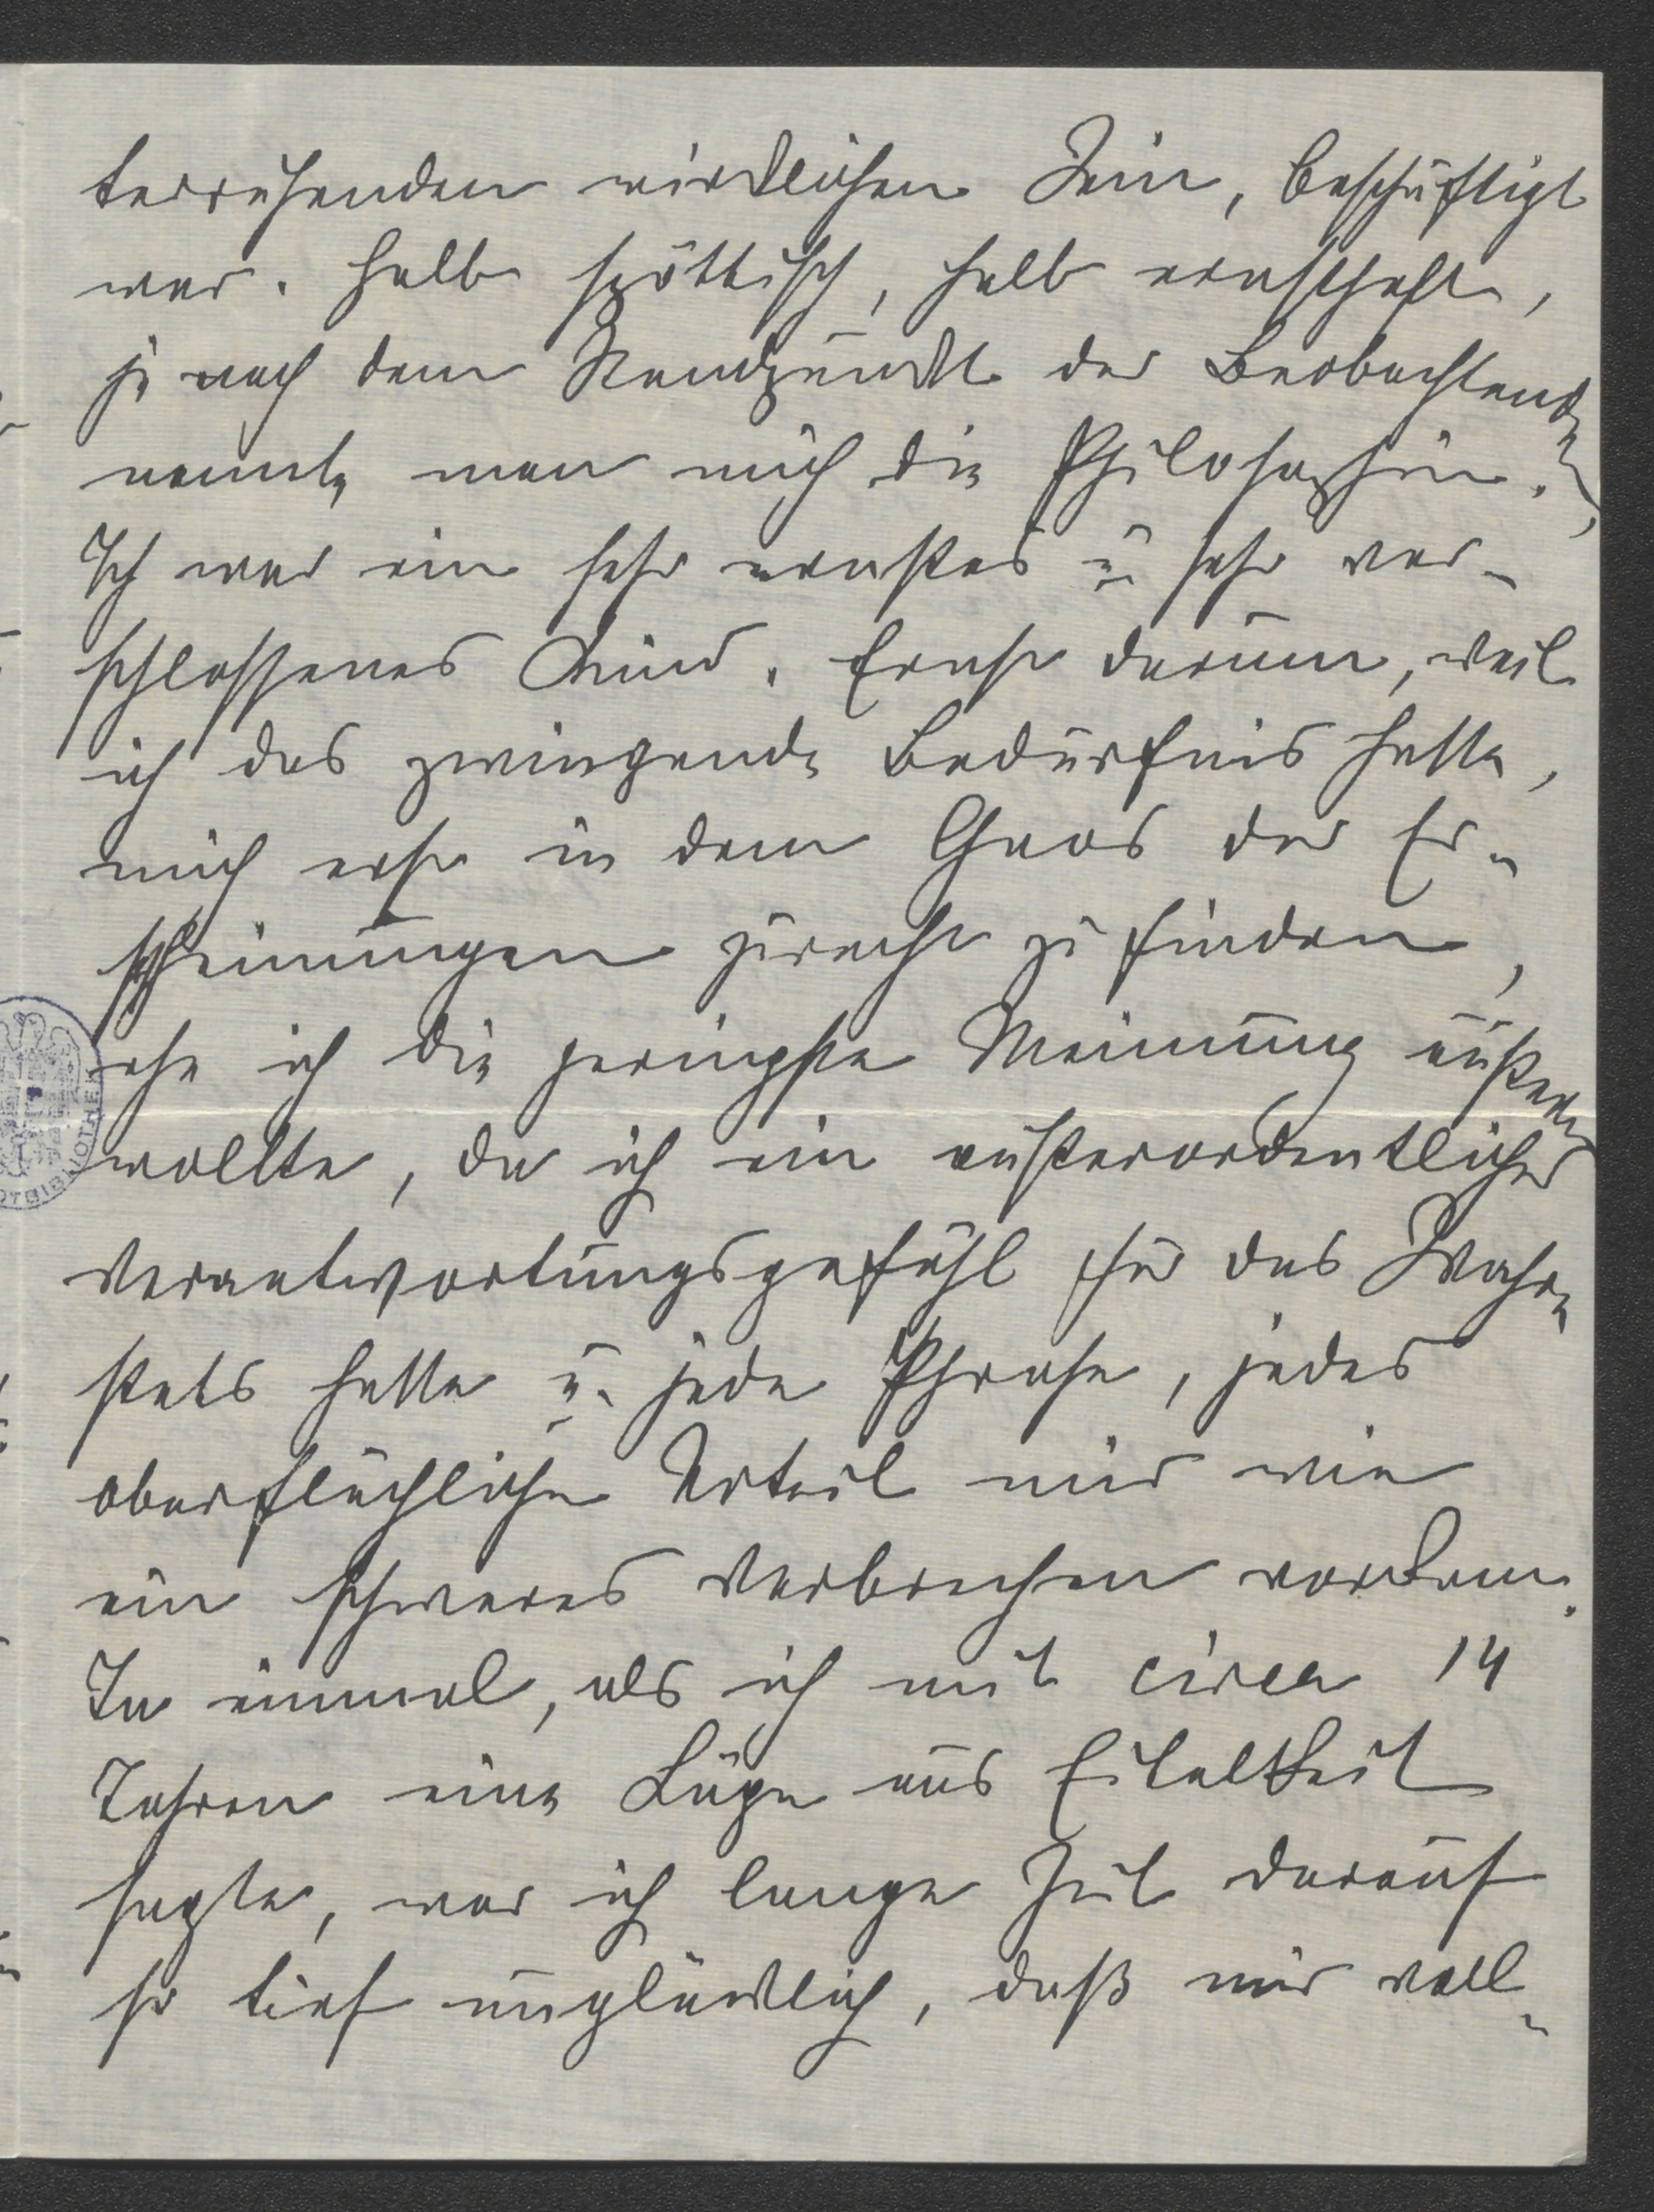 terruhenden wirklichen Sein, beschäftigt
war. Halb spöttisch, halb ernsthaft,
je nach dem Standpunkt der Beobachtenden,
nannte man mich die Philosophin.
Ich war ein sehr ernstes u. sehr ver-
schlossenes Kind. Ernst darum, weil
ich das zwingende Bedürfnis hatte,
mich erst in dem Chaos der Er-
scheinungen zurecht zu finden,
ehe ich die geringste Meinung äußern
wollte, da ich ein außerordentliches
Verantwortungsgefühl für das Wahre
stets hatte u. jede Phrase, jedes
oberflächliche Urteil mir wie
ein schweres Verbrechen vorkam.
Ja einmal, als ich mit circa 14
Jahren eine Lüge aus Eitelkeit
sagte, war ich lange Zeit darauf
so tief unglücklich, daß mir voll-